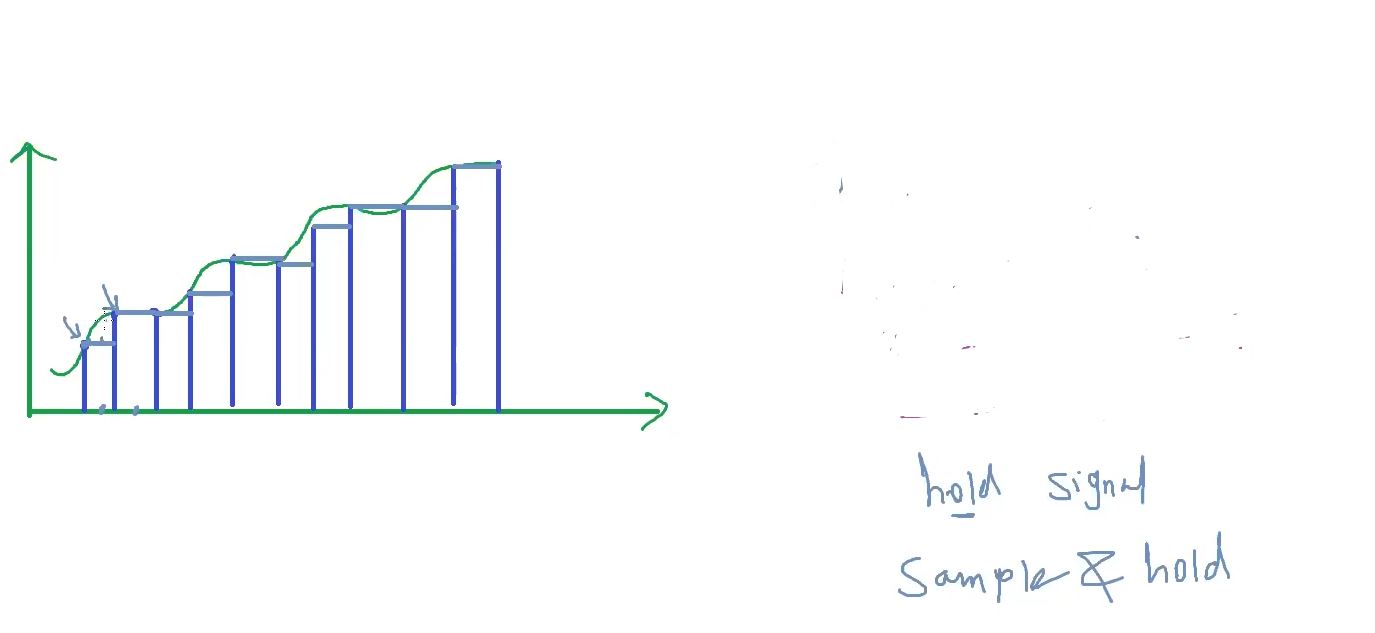 hold signal
Sample & hold